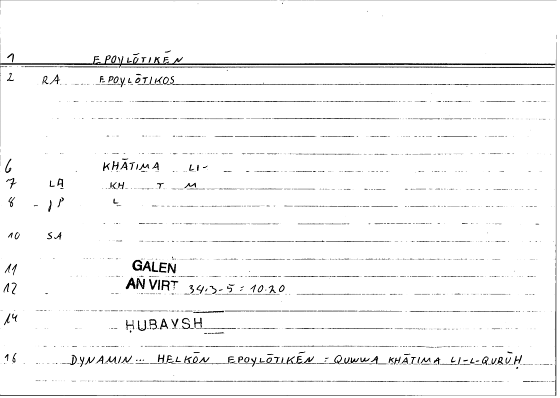 1 EPOYLŌTIKĒN
2 RA EPOYLŌTIKOS
6 KHĀTIMA LI-
7 LA KH T M
8 P L
10 SA
11 GALEN
12 AN VIRT 34.3-5 = 10.20
14 ḤUBAYSH
16 DYNAMIN... HELKŌN EPOYLŌTIKĒN = QUWWA KHĀTIMA LI-L-QURŪḤ